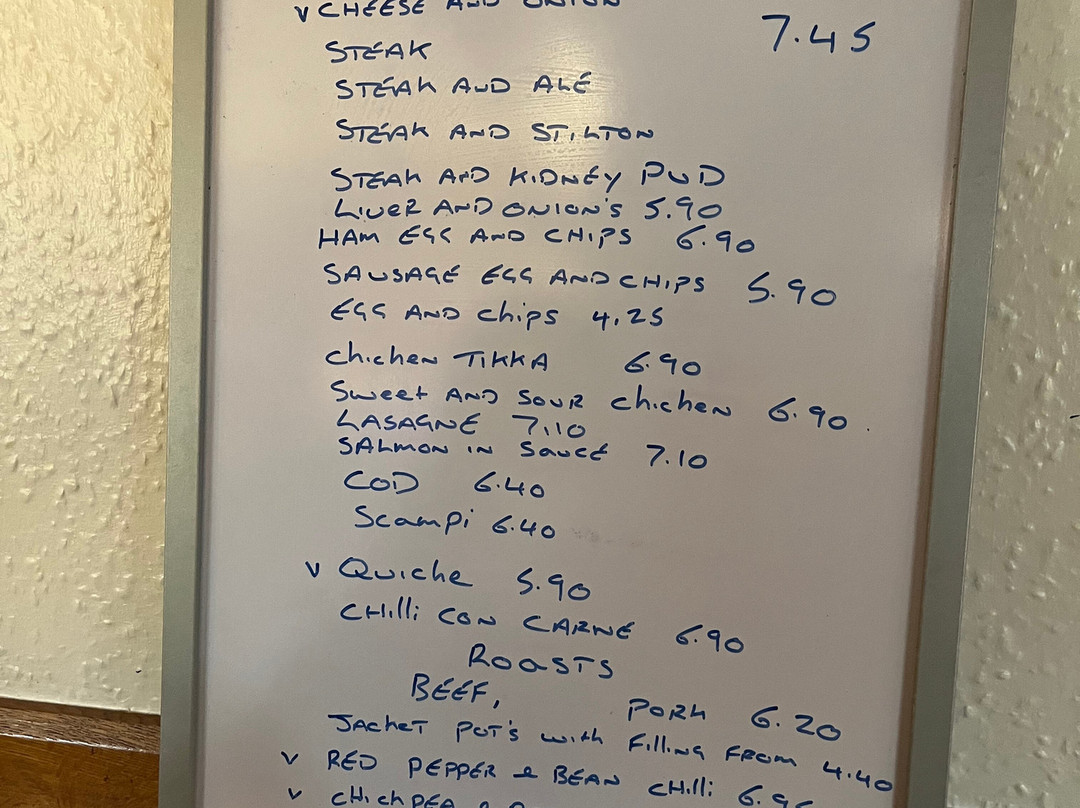 V CHEESE AND ONION
7.45
STEAK
STEAK AND ALE
STEAK AND STILTON
STEAK AND KIDNEY PUD
LIVER AND ONION'S 5.90
HAM EGG AND CHIPS 6.90
SAUSAGE EGG AND CHIPS 5.90
EGG AND chips 4.25
chicken TIKKA 6.90
Sweet AND SOUR chicken 6.90
LASAGNE 7.10
SALMON IN SAUCE 7.10
COD 6.40
Scampi 6.40
V Quiche 5.90
CHilli CON CARNE 6.90
ROASTS
BEEF, PORK 6.20
JACKET POT'S with Filling FROM 4.40
V RED PEPPER & BEAN CHilli
V CHICKPEA